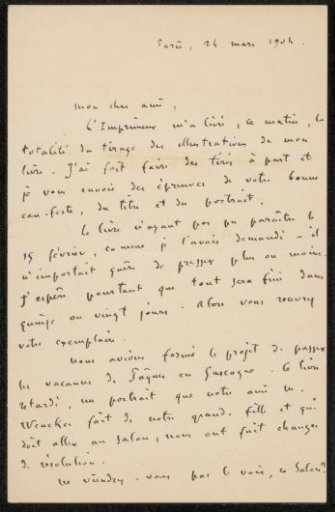 Paris, 24 mars 1904.
mon cher ami,
L'Imprimeur m'a livré, ce matin, la
totalité du tirage des illustrations de mon
livre. J'ai fait faire des tirés à part et
je vous envoie des épreuves de votre bonne
, du titre et du portrait.
Le livre n'ayant pas pu paraître le
15 février, comme je l'avais demandé, il
n'importait guère de presser plus ou moins.
J'espère pourtant que tout sera fini dans
quinze ou vingt jours. Alors vous recevrez
votre exemplaire.
Nous avions formé le projet de passer
les vacances de Pâques en Gascogne. Ce livre
retardé, un portrait que notre ami M.
Wencker fait de notre grande fille et qui
doit aller au Salon, nous ont fait changer
de résolution.
Ne viendrez-vous pas le voir, ce Salon?